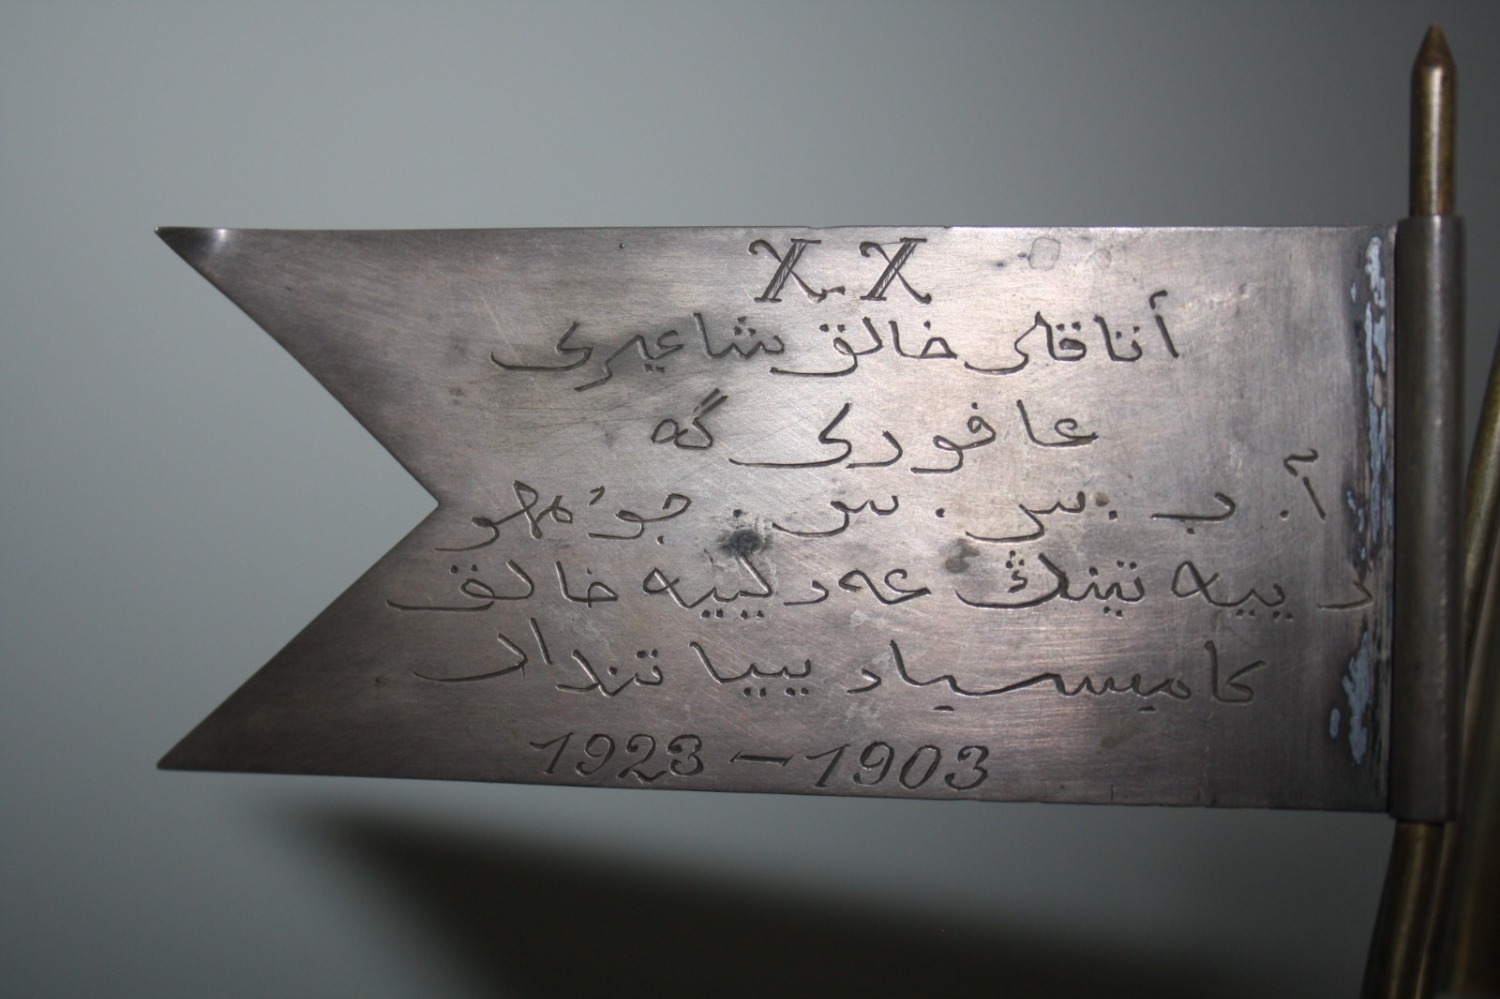 X-X
أناقلى خالق شاعيرى
عافورى گه
آ. ب. س. س. جوٴمهو
رييه تىنڭ عەدلييه خالق
كاميسسيار يييا تندان
1923 — 1903